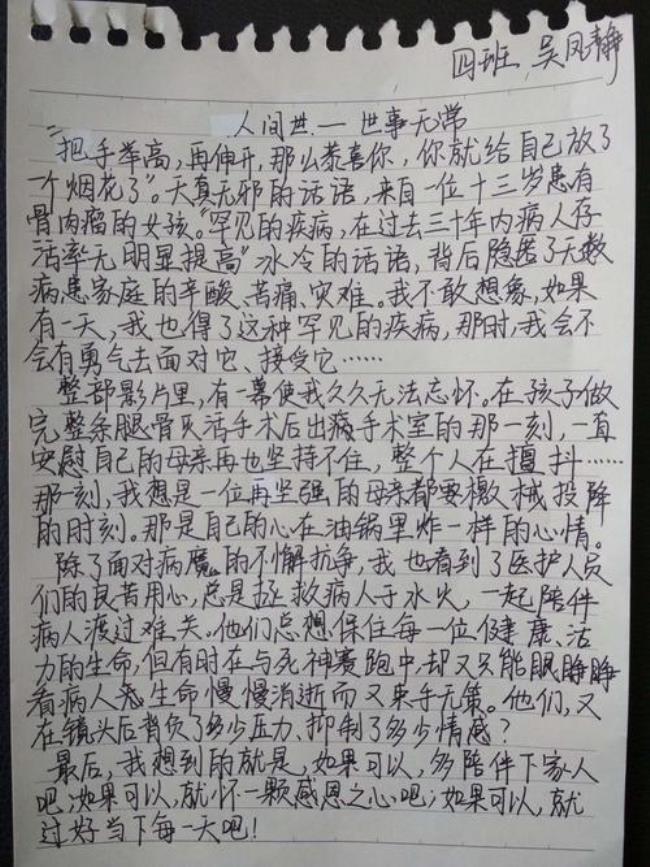 四班 吴凤静
人间世——世事无常
“把手举高，再伸开，那么恭喜你，你就给自己放了
一个烟花了”。天真无邪的话语，来自一位十三岁患有
骨肉瘤的女孩。“罕见的疾病，在过去三十年内病人存
活率无明显提高”冰冷的话语，背后隐匿了无数
病患家庭的辛酸、苦痛、灾难。我不敢想象，如果
有一天，我也得了这种罕见的疾病，那时，我会不
会有勇气去面对它、接受它……
整部影片里，有一幕使我久久无法忘怀。在孩子做
完整条腿骨灭活手术后出病手术室的那一刻，一直
安慰自己的母亲再也坚持不住，整个人在擅抖……
那一刻，我想是一位再坚强的母亲都要檄械投降
的时刻。那是自己的心在油锅里炸一样的心情。
除了面对病魔的不懈抗争，我也看到了医护人员
们的良苦用心，总是拯救病人于水火，一起陪伴
病人渡过难关。他们总想保住每一位健康、活
力的生命，但有时在与死神赛跑中，却又只能眼睁睁
看病人生命慢慢消逝而又束手无策。他们，又
在镜头后背负了多少压力、抑制了多少情感？
最后，我想到的就是，如果可以，多陪伴下家人
吧；如果可以，就怀一颗感恩之心吧；如果可以，就
过好当下每一天吧！